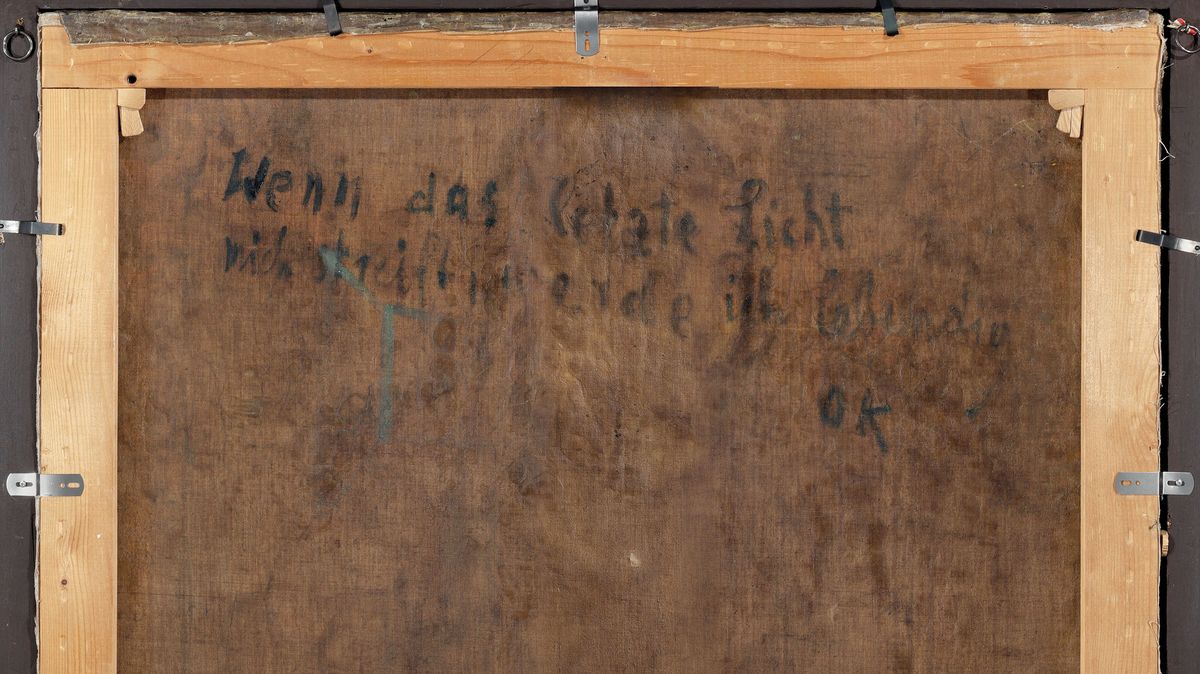 Wenn das letzte Licht
mich streift, werde ich lebendig
OK